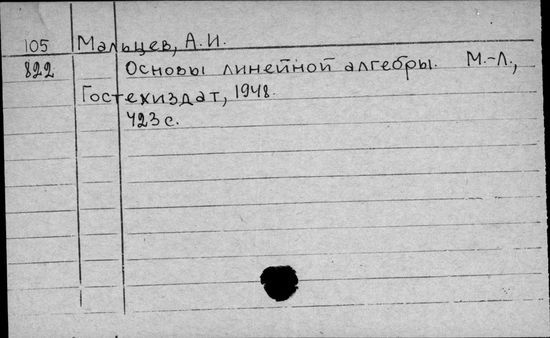 105 Мальцев, А.И.
822 Основы линейной алгебры. М.-Л.,
Гостехиздат, 1948.
423 с.